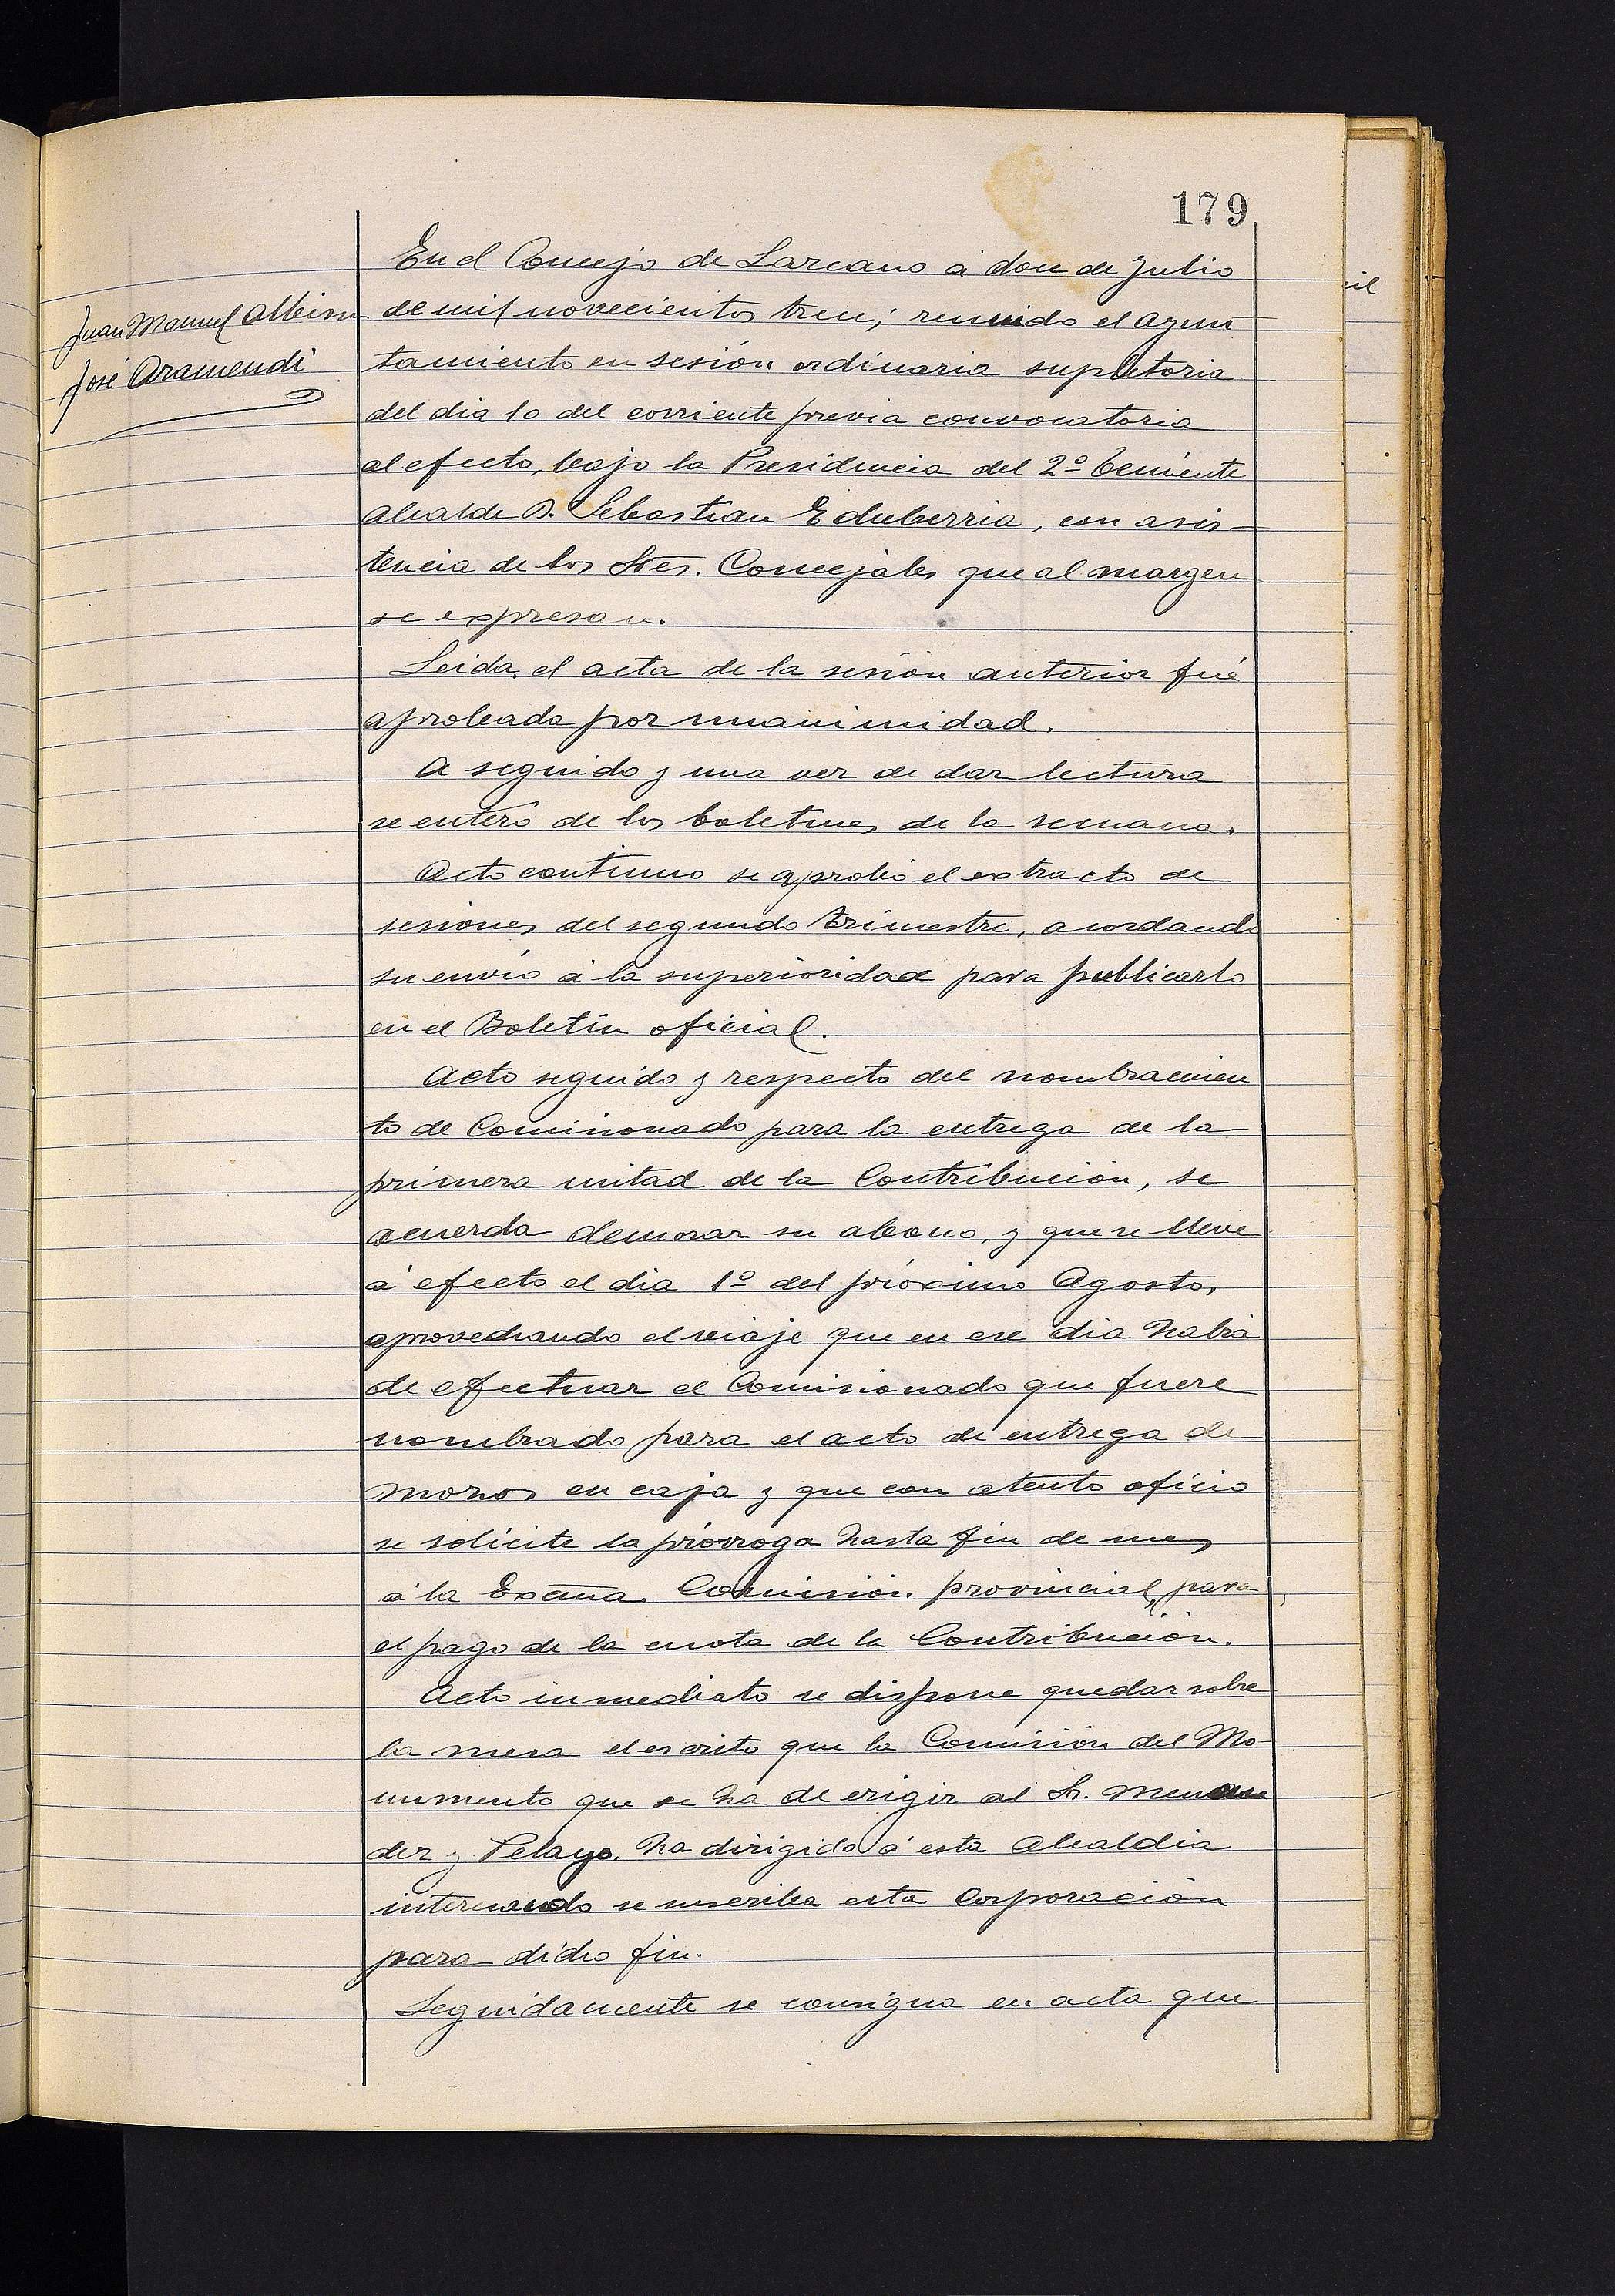 179
Juan Manuel Albisu
José Aramendi
En el Concejo de Lazcano á doce de Julio
de mil novecientos trece; reunido el Ayun
tamiento en sesión ordinaria supletoria
del dia 10 del corriente previa convocatoria
al efecto, bajo la Presidencia del 2º teniente
Alcalde D. Sebastian Echeberria, con asis-
tencia de los Sres. Concejales que al margen
se expresan.
Leida el acta de la sesión anterior fué
aprobada por unanimidad.
A seguido y una vez de dar lectura
se enteró de los boletines de la semana.
Acto continuo se aprobó el extracto de
sesiones del segundo trimestre, acordando
su envío á la superioridad para publicarlo
en el Boletin oficial.
Acto seguido y respecto del nombramien
to de Comisionado para la entrega de la
primera mitad de la Contribución, se
acuerda demorar su abono, y que se lleve
á efecto el dia 1º del próximo Agosto,
aprovechando el viaje que en ese dia habrá
de efectuar el Comisionado que fuere
nombrado para el acto de entrega de
mozos en caja y que con atento oficio
se solicite la prórroga hasta fin de mes
á la Excma. Comisión provincial, para
el pago de la cuota de la Contribución.
Acto inmediato se dispone quedar sobre
la mesa el escrito que la Comisión del Mo-
numento que se ha de erigir al Sr. Menen
dez y Pelayo, ha dirigido á esta Alcaldia
interesando se suscriba esta Corporación
para dicho fin.
Seguidamente se consigna en acta que